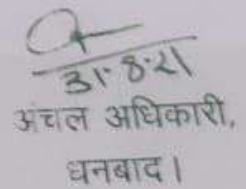 31.8.21
अंचल अधिकारी,
धनबाद।